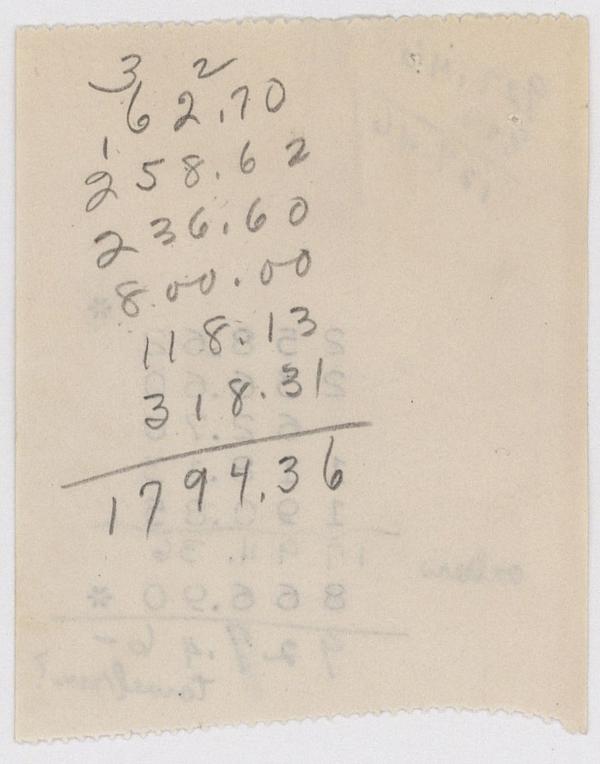 3 2
62.70
1
258.62
236.60
800.00
118.13
318.31
1794.36